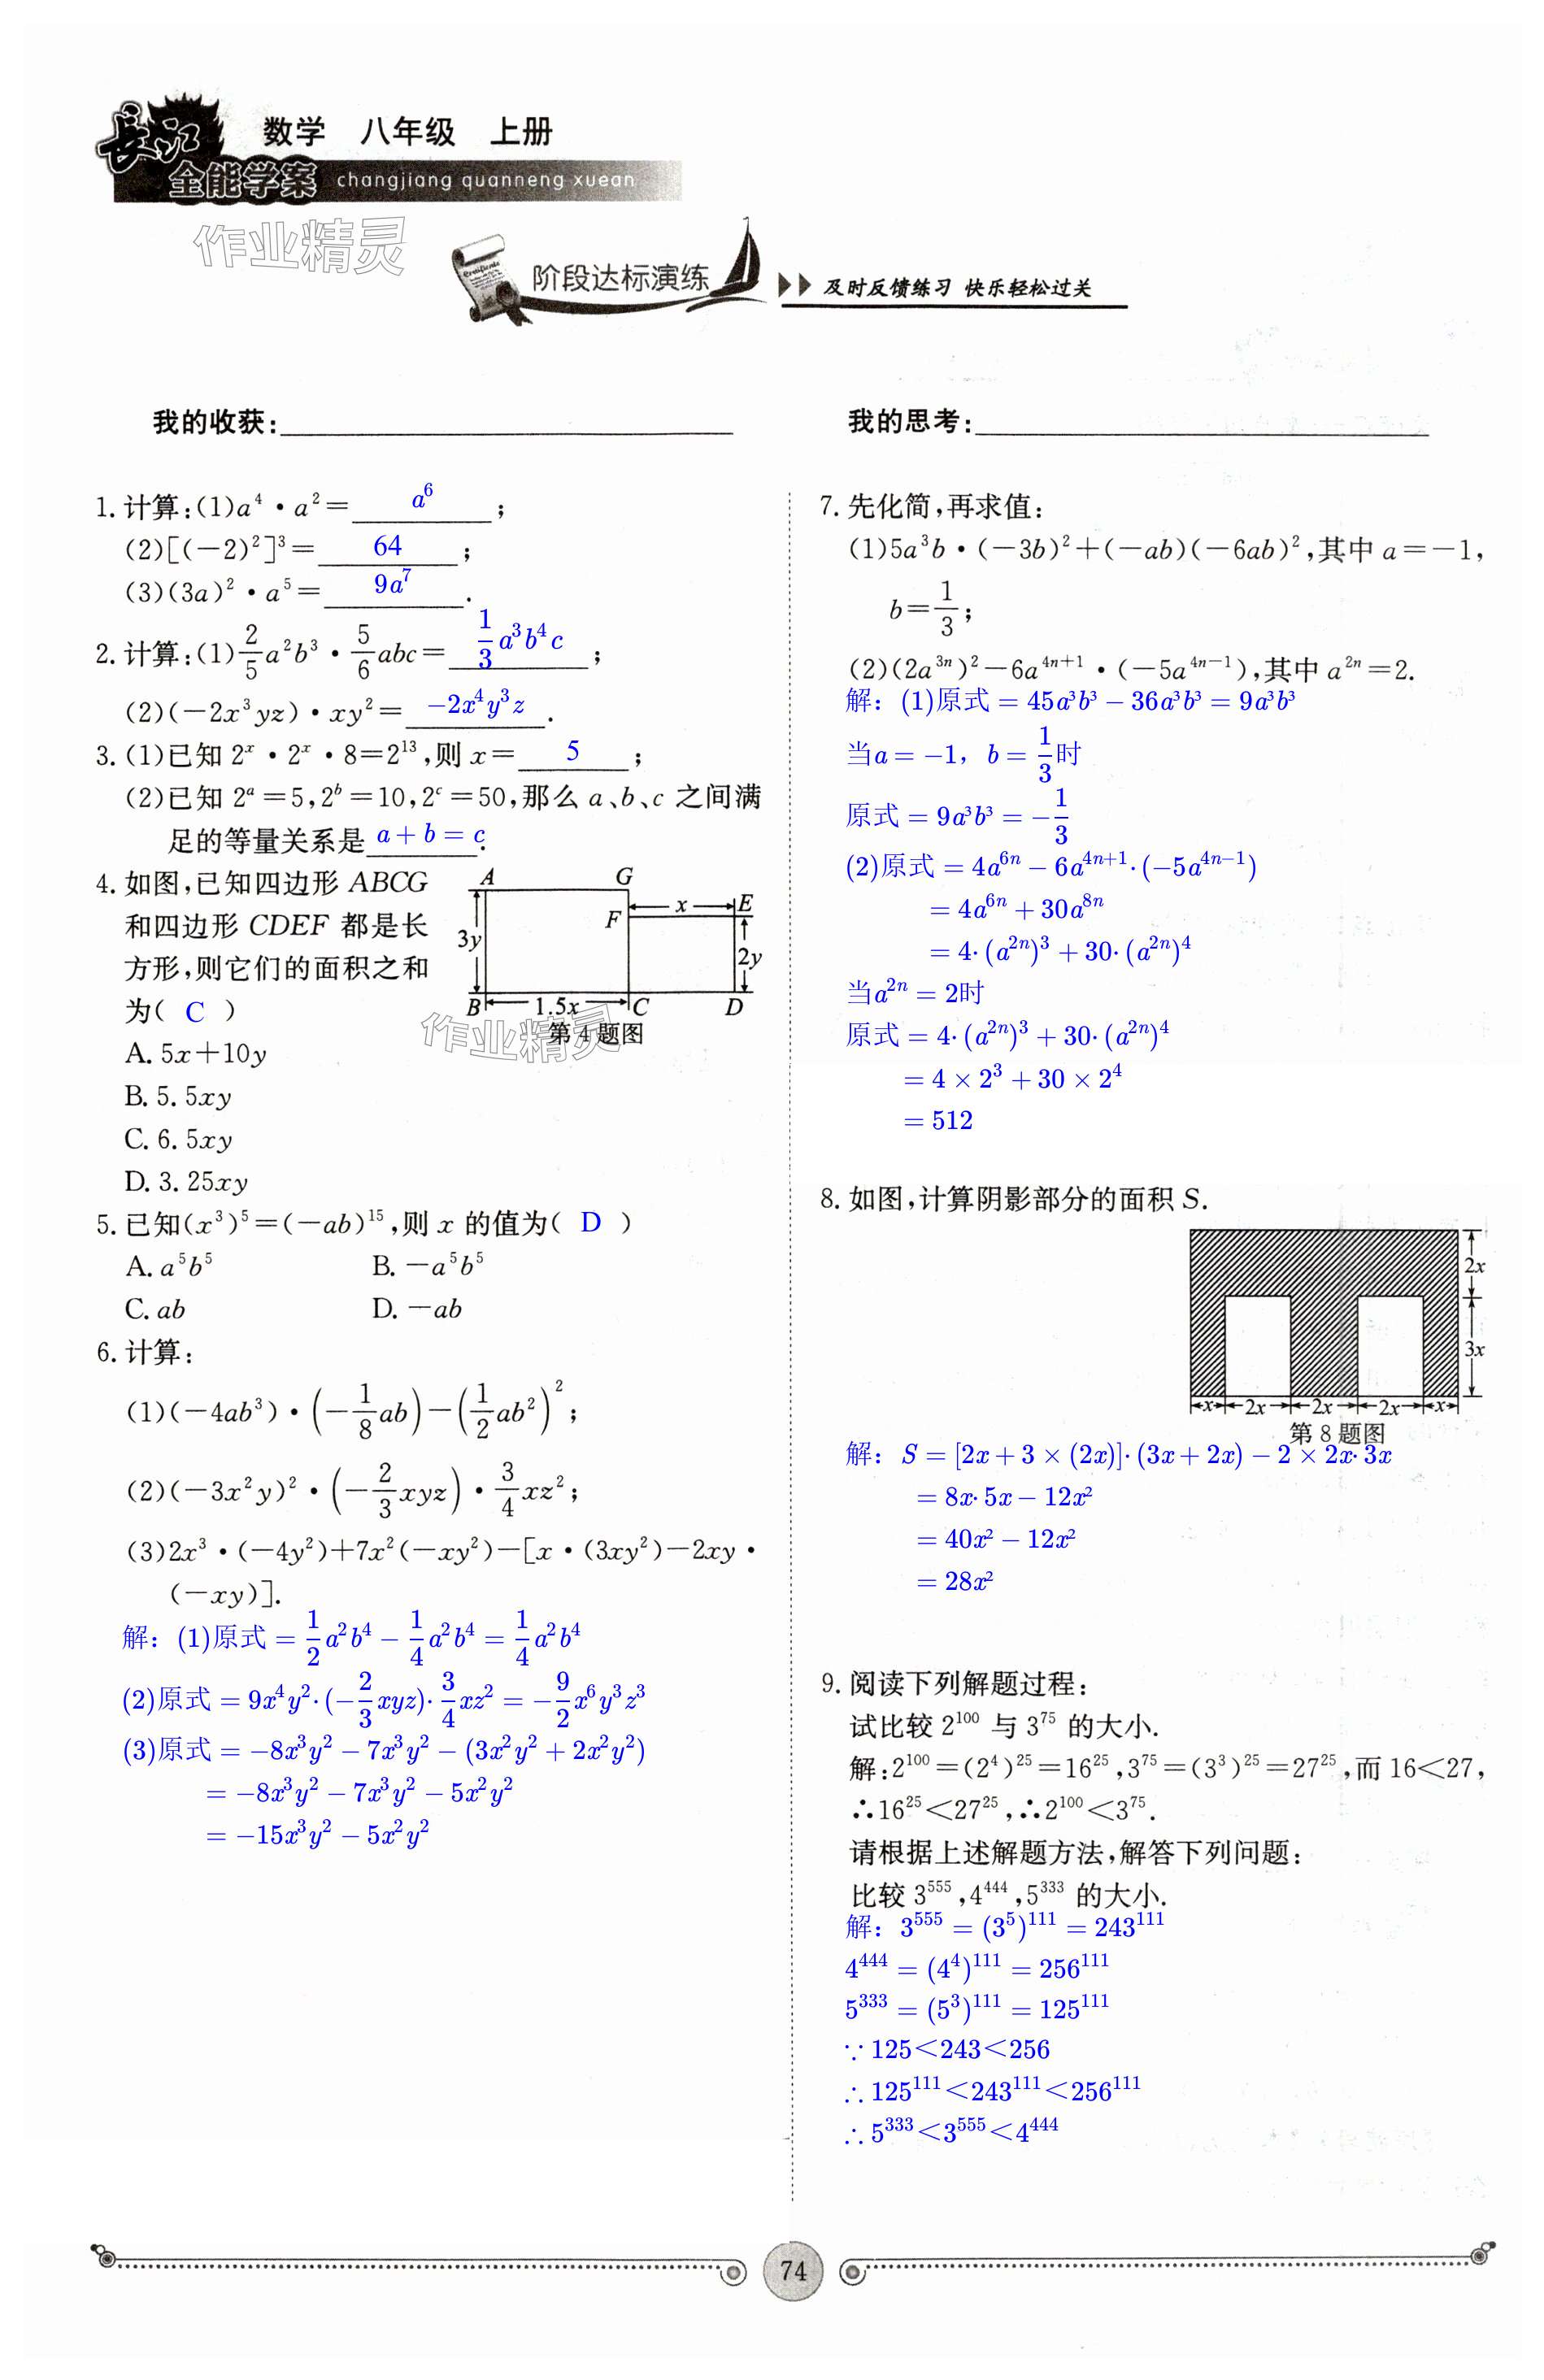 长江 数学 八年级 上册
全能学案 changjiang quanneng xuean
作业精灵
阶段达标演练 及时反馈练习 快乐轻松过关
我的收获:
1. 计算:(1)a⁴·a²= a⁶ ;
(2)[(-2)²]³= 64 ;
(3)(3a)²·a⁵= 9a⁷ .
2. 计算:(1)2/5a²b³·5/6abc= 1/3a³b⁴c ;
(2)(-2x³yz)·xy²= -2x⁴y³z .
3. (1)已知 2ˣ·2ˣ·8=2¹³,则 x= 5 ;
(2)已知 2ᵃ=5,2ᵇ=10,2ᶜ=50,那么 a、b、c 之间满
足的等量关系是 a+b=c .
4. 如图,已知四边形 ABCG
和四边形 CDEF 都是长
方形,则它们的面积之和
为( C )
A G
F x E
3y 2y
B 1.5x C D
第 4 题图
作业精灵
A. 5x+10y
B. 5.5xy
C. 6.5xy
D. 3.25xy
5. 已知(x³)⁵=(-ab)¹⁵,则 x 的值为( D )
A. a⁵b⁵ B. -a⁵b⁵
C. ab D. -ab
6. 计算:
(1)(-4ab³)·(-1/8ab)-(1/2ab²)²;
(2)(-3x²y)²·(-2/3xyz)·3/4xz²;
(3)2x³·(-4y²)+7x²(-xy²)-[x·(3xy²)-2xy·
(-xy)].
解：(1)原式=1/2a²b⁴-1/4a²b⁴=1/4a²b⁴
(2)原式=9x⁴y²·(-2/3xyz)·3/4xz²=-9/2x⁶y³z³
(3)原式=-8x³y²-7x³y²-(3x²y²+2x²y²)
=-8x³y²-7x³y²-5x²y²
=-15x³y²-5x²y²
我的思考:
7. 先化简,再求值:
(1)5a³b·(-3b)²+(-ab)(-6ab)²,其中 a=-1,
b=1/3;
(2)(2a³ⁿ)²-6a⁴ⁿ⁺¹·(-5a⁴ⁿ⁻¹),其中 a²ⁿ=2.
解：(1)原式=45a³b³-36a³b³=9a³b³
当a=-1，b=1/3时
原式=9a³b³=-1/3
(2)原式=4a⁶ⁿ-6a⁴ⁿ⁺¹·(-5a⁴ⁿ⁻¹)
=4a⁶ⁿ+30a⁸ⁿ
=4·(a²ⁿ)³+30·(a²ⁿ)⁴
当a²ⁿ=2时
原式=4·(a²ⁿ)³+30·(a²ⁿ)⁴
=4×2³+30×2⁴
=512
8. 如图,计算阴影部分的面积 S.
2x
3x
x 2x 2x 2x x
第 8 题图
解：S=[2x+3×(2x)]·(3x+2x)-2×2x·3x
=8x·5x-12x²
=40x²-12x²
=28x²
9. 阅读下列解题过程:
试比较 2¹⁰⁰ 与 3⁷⁵ 的大小.
解:2¹⁰⁰=(2⁴)²⁵=16²⁵,3⁷⁵=(3³)²⁵=27²⁵,而 16<27,
∴16²⁵<27²⁵,∴2¹⁰⁰<3⁷⁵.
请根据上述解题方法,解答下列问题:
比较 3⁵⁵⁵,4⁴⁴⁴,5³³³ 的大小.
解：3⁵⁵⁵=(3⁵)¹¹¹=243¹¹¹
4⁴⁴⁴=(4⁴)¹¹¹=256¹¹¹
5³³³=(5³)¹¹¹=125¹¹¹
∵125<243<256
∴125¹¹¹<243¹¹¹<256¹¹¹
∴5³³³<3⁵⁵⁵<4⁴⁴⁴
74